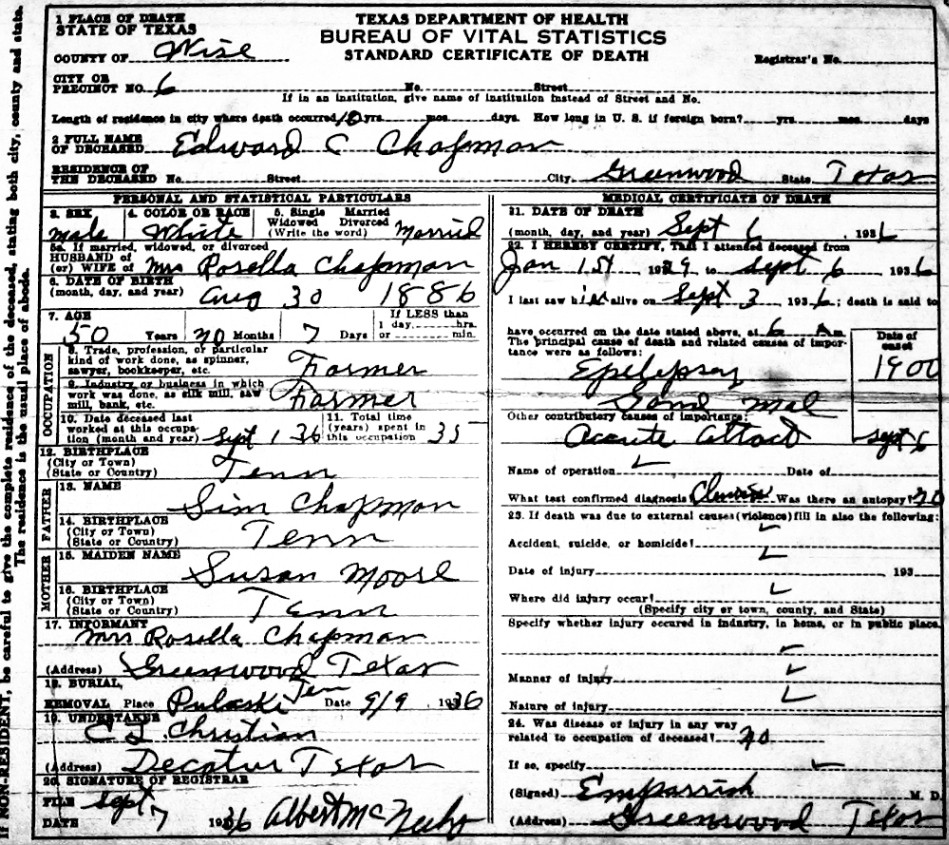 If NON-RESIDENT, be careful to give the complete residence of the deceased, stating both city, county and state.
The residence is the usual place of abode.
1 PLACE OF DEATH
STATE OF TEXAS
COUNTY OF Wise
TEXAS DEPARTMENT OF HEALTH
BUREAU OF VITAL STATISTICS
STANDARD CERTIFICATE OF DEATH
Registrar's No.
CITY OR
PRECINCT NO. 6 No. Street
If in an institution, give name of institution instead of Street and No.
Length of residence in city where death occurred 10 yrs. mos. days. How long in U. S. if foreign born? yrs. mos. days
2 FULL NAME
OF DECEASED Edward C Chapman
RESIDENCE OF
THE DECEASED No. Street City Greenwood State Texas
PERSONAL AND STATISTICAL PARTICULARS
3. SEX
male
4. COLOR OR RACE
White
5. Single Married
Widowed Divorced
(Write the word) Married
5a. If married, widowed, or divorced
HUSBAND of
(or) WIFE of Mrs Rosella Chapman
6. DATE OF BIRTH
(month, day, and year) Aug 30 1886
7. AGE
50 Years no Months 7 Days
If LESS than
1 day, hrs.
or min.
OCCUPATION
8. Trade, profession, or particular
kind of work done, as spinner,
sawyer, bookkeeper, etc. Farmer
9. Industry or business in which
work was done, as silk mill, saw
mill, bank, etc. Farmer
10. Date deceased last
worked at this occupa-
tion (month and year) Sept 1 36
11. Total time
(years) spent in
this occupation 35
12. BIRTHPLACE
(City or Town)
(State or Country) Tenn
FATHER
13. NAME
Sim Chapman
14. BIRTHPLACE
(City or Town)
(State or Country) Tenn
MOTHER
15. MAIDEN NAME
Susan Moore
16. BIRTHPLACE
(City or Town)
(State or Country) Tenn
17. INFORMANT
Mrs Rosella Chapman
(Address) Greenwood Texas
18. BURIAL,
REMOVAL Place Pulaski Ten Date 9/9 1936
19. UNDERTAKER
Christian
(Address) Decatur Texas
20. SIGNATURE OF REGISTRAR
FILE
DATE Sept 7 1936 Albert
MEDICAL CERTIFICATE OF DEATH
21. DATE OF DEATH
(month, day, and year) Sept 6 1936
22. I HEREBY CERTIFY, That I attended deceased from
Jan 1st 1929 to Sept 6 1936
I last saw him alive on Sept 3 1936; death is said to
have occurred on the date stated above, at 6 Am.
The principal cause of death and related causes of impor-
tance were as follows:
Date of
onset
Epilepsy 1900
Grand Mal
Other contributory causes of importance:
Accute attack Sept 6
Name of operation Date of
What test confirmed diagnosis? Was there an autopsy? no
23. If death was due to external causes (violence) fill in also the following:
Accident, suicide, or homicide?
Date of injury 193
Where did injury occur?
(Specify city or town, county, and State)
Specify whether injury occured in industry, in home, or in public place.
Manner of injury
Nature of injury
24. Was disease or injury in any way
related to occupation of deceased? no
If so, specify
(Signed) Emparrish M. D.
(Address) Greenwood Texas